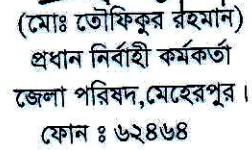 (মোঃ তৌফিকুর রহমান)
প্রধান নির্বাহী কর্মকর্তা
জেলা পরিষদ,মেহেরপুর।
ফোন ঃ ৬২৪৬৪